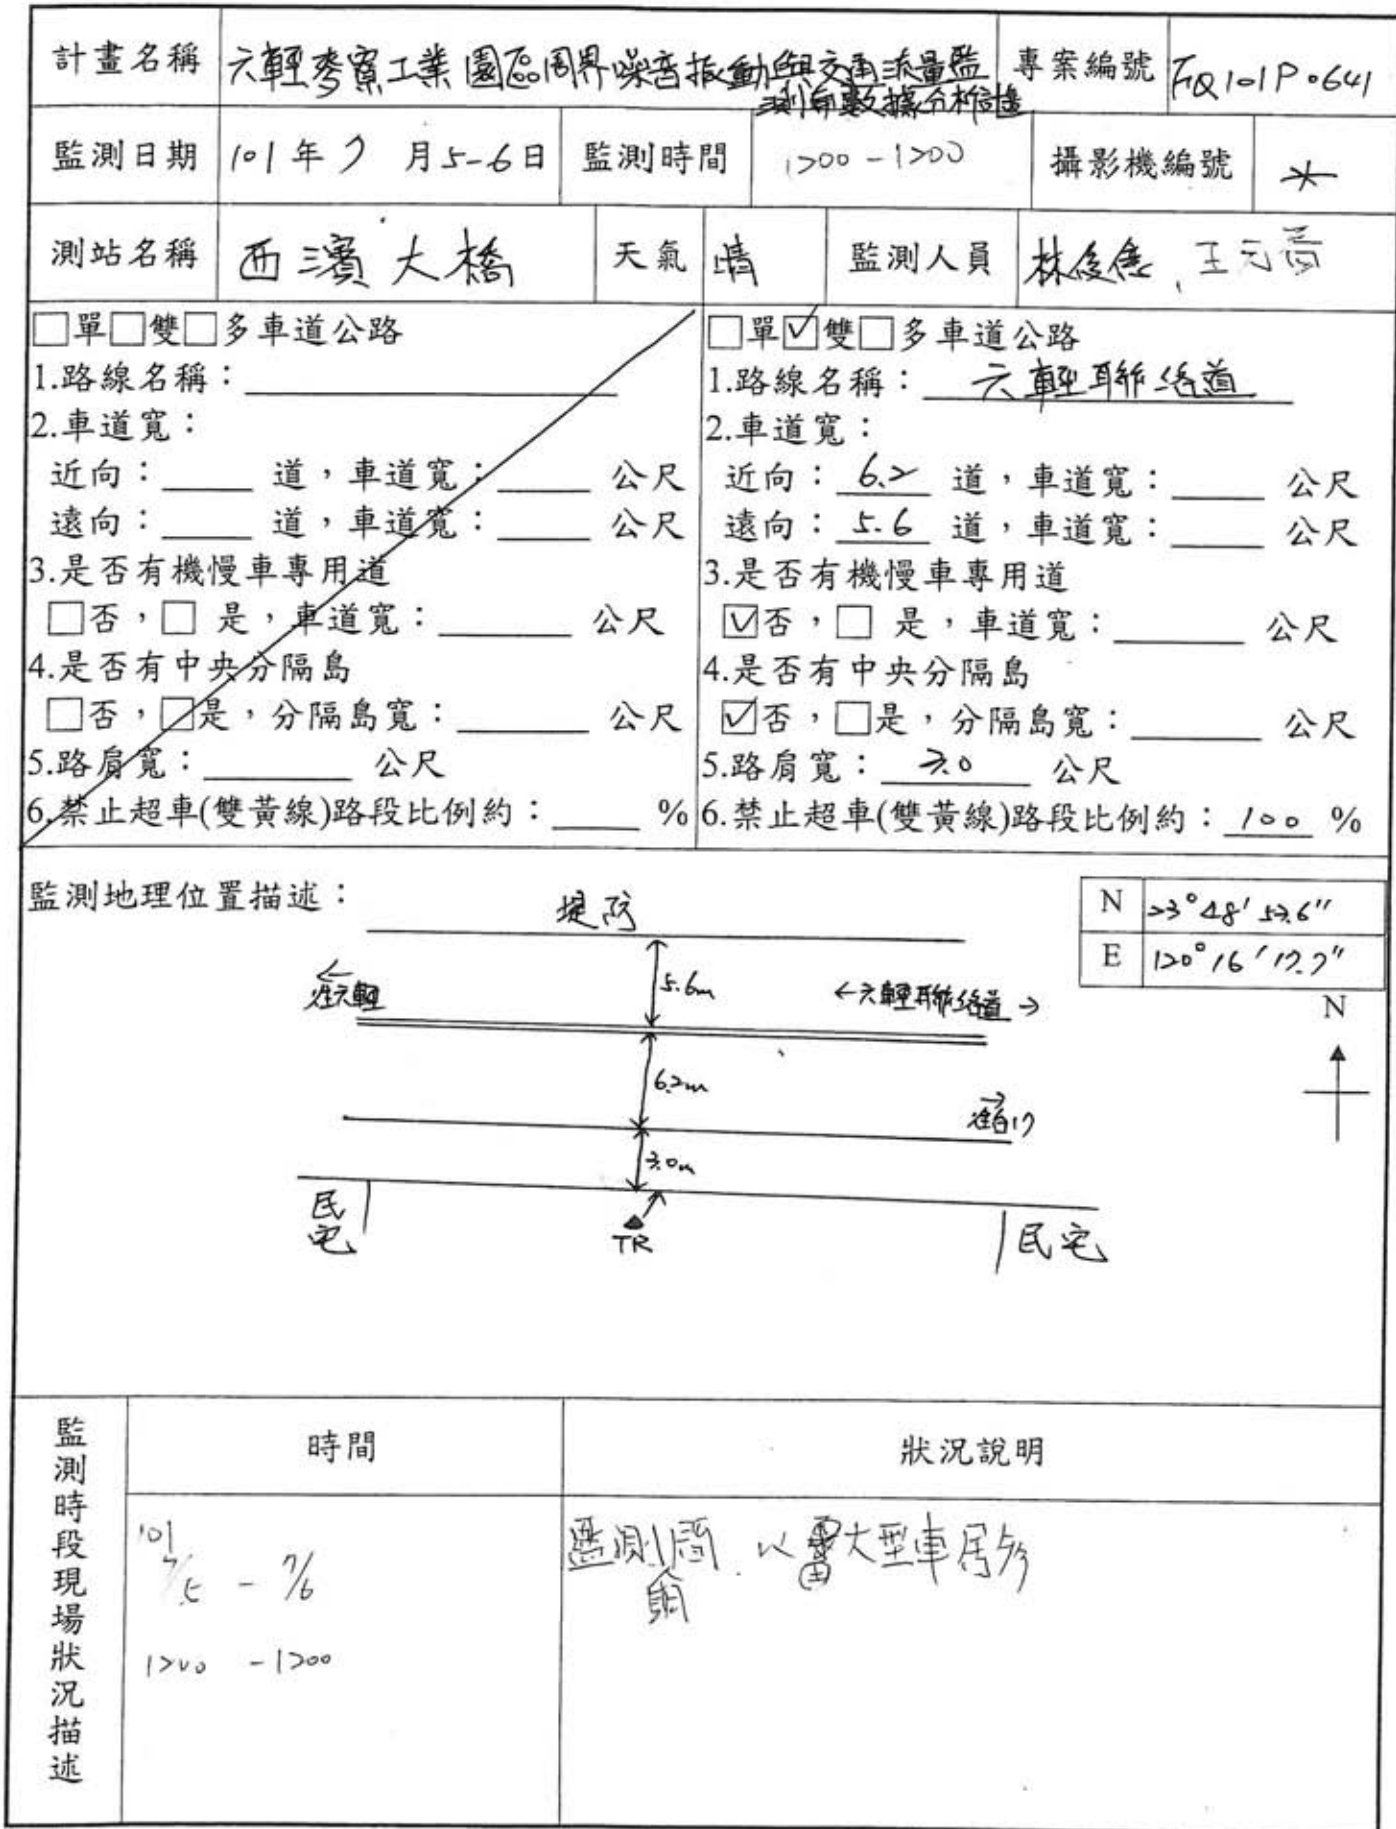 計畫名稱 六輕麥寮工業園區周界噪音振動與交通流量監測與數據分析計畫 專案編號 FQ101P0641
監測日期 101年7月5-6日 監測時間 1200-1200 攝影機編號
測站名稱 西濱大橋 天氣 晴 監測人員 林 王元
□單□雙□多車道公路
1.路線名稱：
2.車道寬：
近向： 道，車道寬： 公尺
遠向： 道，車道寬： 公尺
3.是否有機慢車專用道
□否，□是，車道寬： 公尺
4.是否有中央分隔島
□否，□是，分隔島寬： 公尺
5.路肩寬： 公尺
6.禁止超車(雙黃線)路段比例約： %
□單☑雙□多車道公路
1.路線名稱：六輕聯絡道
2.車道寬：
近向：6.2 道，車道寬： 公尺
遠向：5.6 道，車道寬： 公尺
3.是否有機慢車專用道
☑否，□是，車道寬： 公尺
4.是否有中央分隔島
☑否，□是，分隔島寬： 公尺
5.路肩寬：3.0 公尺
6.禁止超車(雙黃線)路段比例約：100 %
監測地理位置描述：
N 23°48'53.6"
E 120°16'17.7"
N
堤防
←往六輕
5.6m
←六輕聯絡道→
6.2m
→往
3.0m
民宅
TR
民宅
監測時段現場狀況描述
時間 狀況說明
101
7/5 - 7/6
1200 -1200
監測期間以 大型車居多